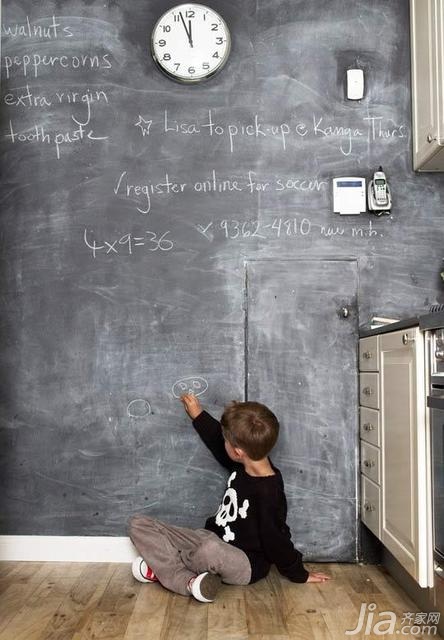 walnuts
peppercorns
extra virgin
toothpaste
☆ Lisa to pick-up @ Kanga Thurs.
✓register online for soccer
✓ 9362-4810
4x9=36
12 1 2 3 4 5 6 7 8 9 10 11
Jia.com 齐家网